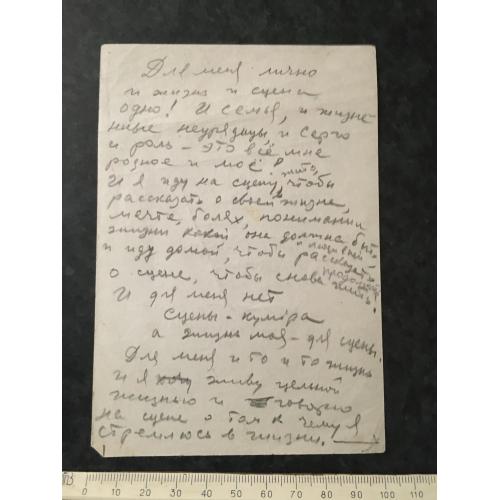 Для меня лично
и жизнь и сцена
одно! И семья, и жизне-
нные неурядицы, и Серго
и роль – это всё мне
родное и моё!
И я иду на сцену, чтобы
рассказать о своей жизне,
мечте, болях, понимании
жизни какой она должна быть
и иду домой, чтобы
о сцене, чтобы снова жить.
И для меня нет
сцены – куміра
а жизнь моя – для сцены.
Для меня и то и то жизнь
И я живу цельной
жизнью и говорю
на сцене о том к чему я
стремлюсь в жизни.
0 10 20 30 40 50 60 70 80 90 100 110